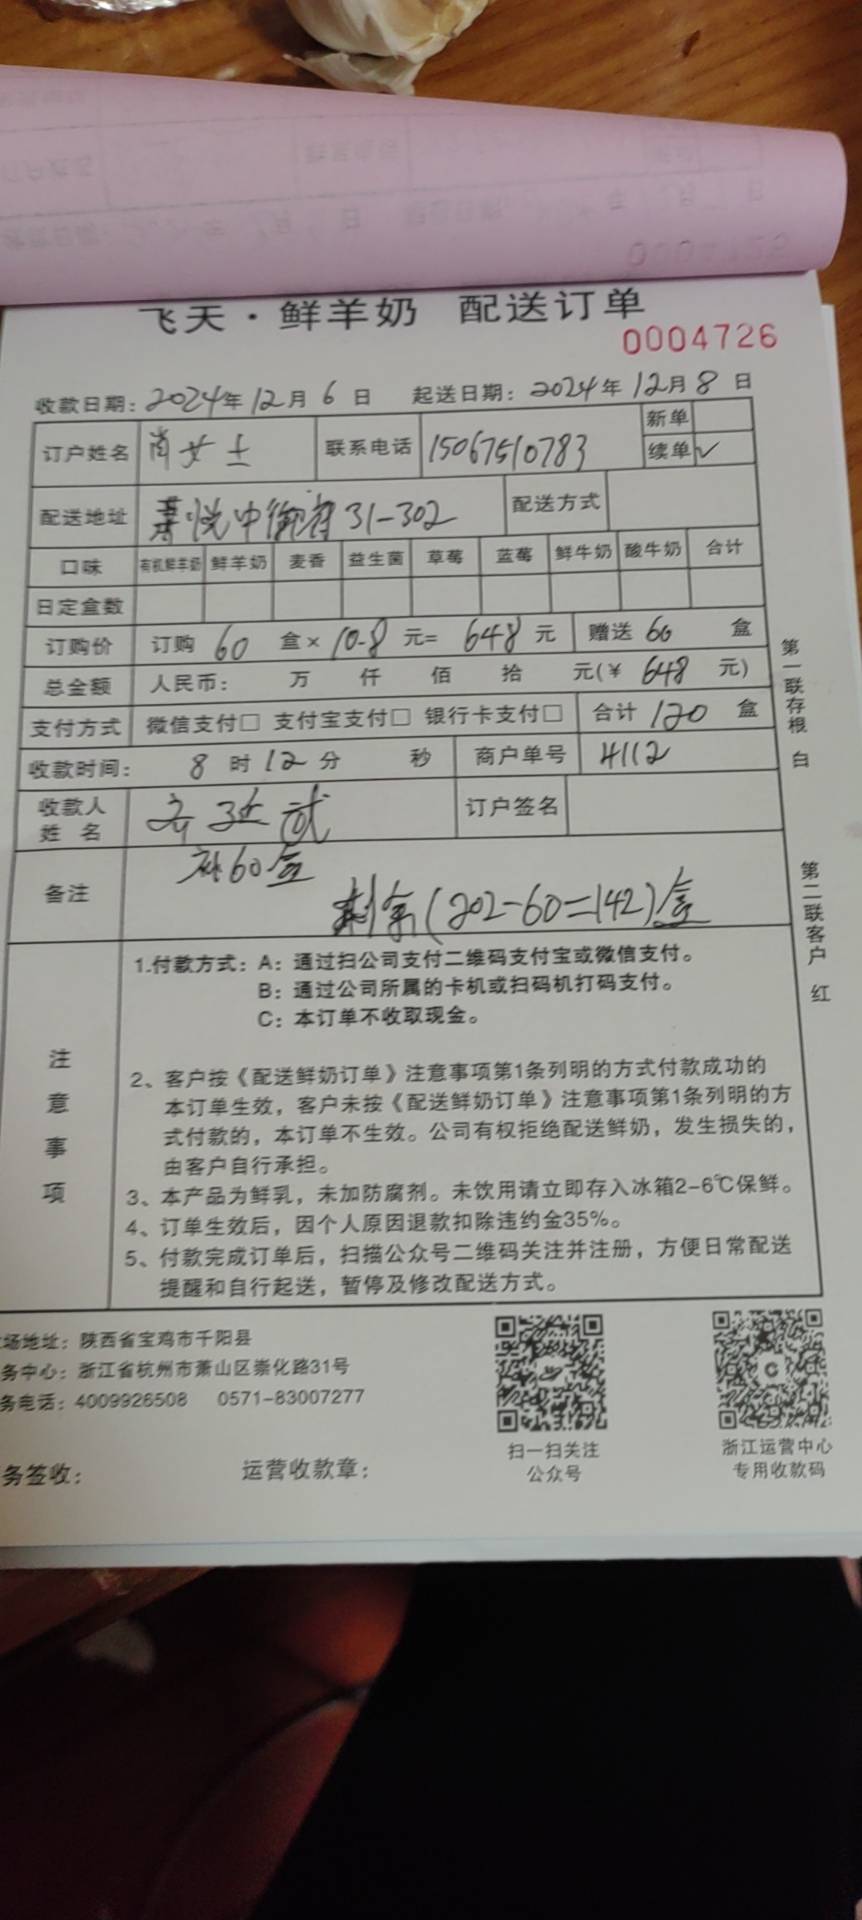 飞天·鲜羊奶 配送订单
0004726
收款日期：2024年12月6日 起送日期：2024年12月8日
订户姓名 肖女士 联系电话 15067510783 新单
续单 ✓
配送地址 中御府31-302 配送方式
口味 有机鲜羊奶 鲜羊奶 麦香 益生菌 草莓 蓝莓 鲜牛奶 酸牛奶 合计
日定盒数
订购价 订购 60 盒×10.8元=648元 赠送 60 盒
总金额 人民币： 万 仟 佰 拾 元(¥ 648 元)
支付方式 微信支付□ 支付宝支付□ 银行卡支付□ 合计 120 盒
收款时间： 8时12分 秒 商户单号 4112
收款人
姓 名
订户签名
备注 补60盒
剩余(202-60=142)盒
第一联存根 白
第二联客户 红
注意事项
1.付款方式：A：通过扫公司支付二维码支付宝或微信支付。
B：通过公司所属的卡机或扫码机打码支付。
C：本订单不收取现金。
2、客户按《配送鲜奶订单》注意事项第1条列明的方式付款成功的
本订单生效，客户未按《配送鲜奶订单》注意事项第1条列明的方
式付款的，本订单不生效。公司有权拒绝配送鲜奶，发生损失的，
由客户自行承担。
3、本产品为鲜乳，未加防腐剂。未饮用请立即存入冰箱2-6℃保鲜。
4、订单生效后，因个人原因退款扣除违约金35%。
5、付款完成订单后，扫描公众号二维码关注并注册，方便日常配送
提醒和自行起送，暂停及修改配送方式。
场地址：陕西省宝鸡市千阳县
务中心：浙江省杭州市萧山区崇化路31号
务电话：4009926508 0571-83007277
扫一扫关注
公众号
浙江运营中心
专用收款码
务签收： 运营收款章：